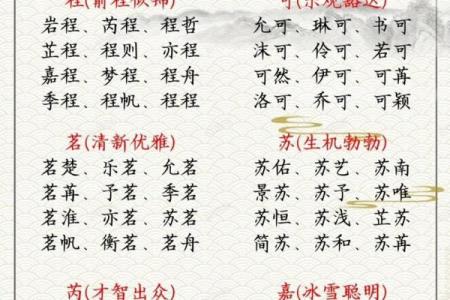 程(前程似锦)
岩程、芮程、程哲
芷程、程则、亦程
嘉程、梦程、程舟
季程、程帆、程程
可(乐观豁达)
允可、琳可、书可
沫可、伶可、若可
可然、伊可、可再
洛可、乔可、可颖
茗(清新优雅)
茗楚、乐茗、允茗
茗再、予茗、季茗
茗淮、亦茗、苏茗
茗帆、衡茗、茗舟
苏(生机勃勃)
苏佑、苏艺、苏南
景苏、苏予、苏唯
苏恒、苏浅、芷苏
简苏、苏和、苏再
芮(才智出众)
嘉(冰雪聪明)